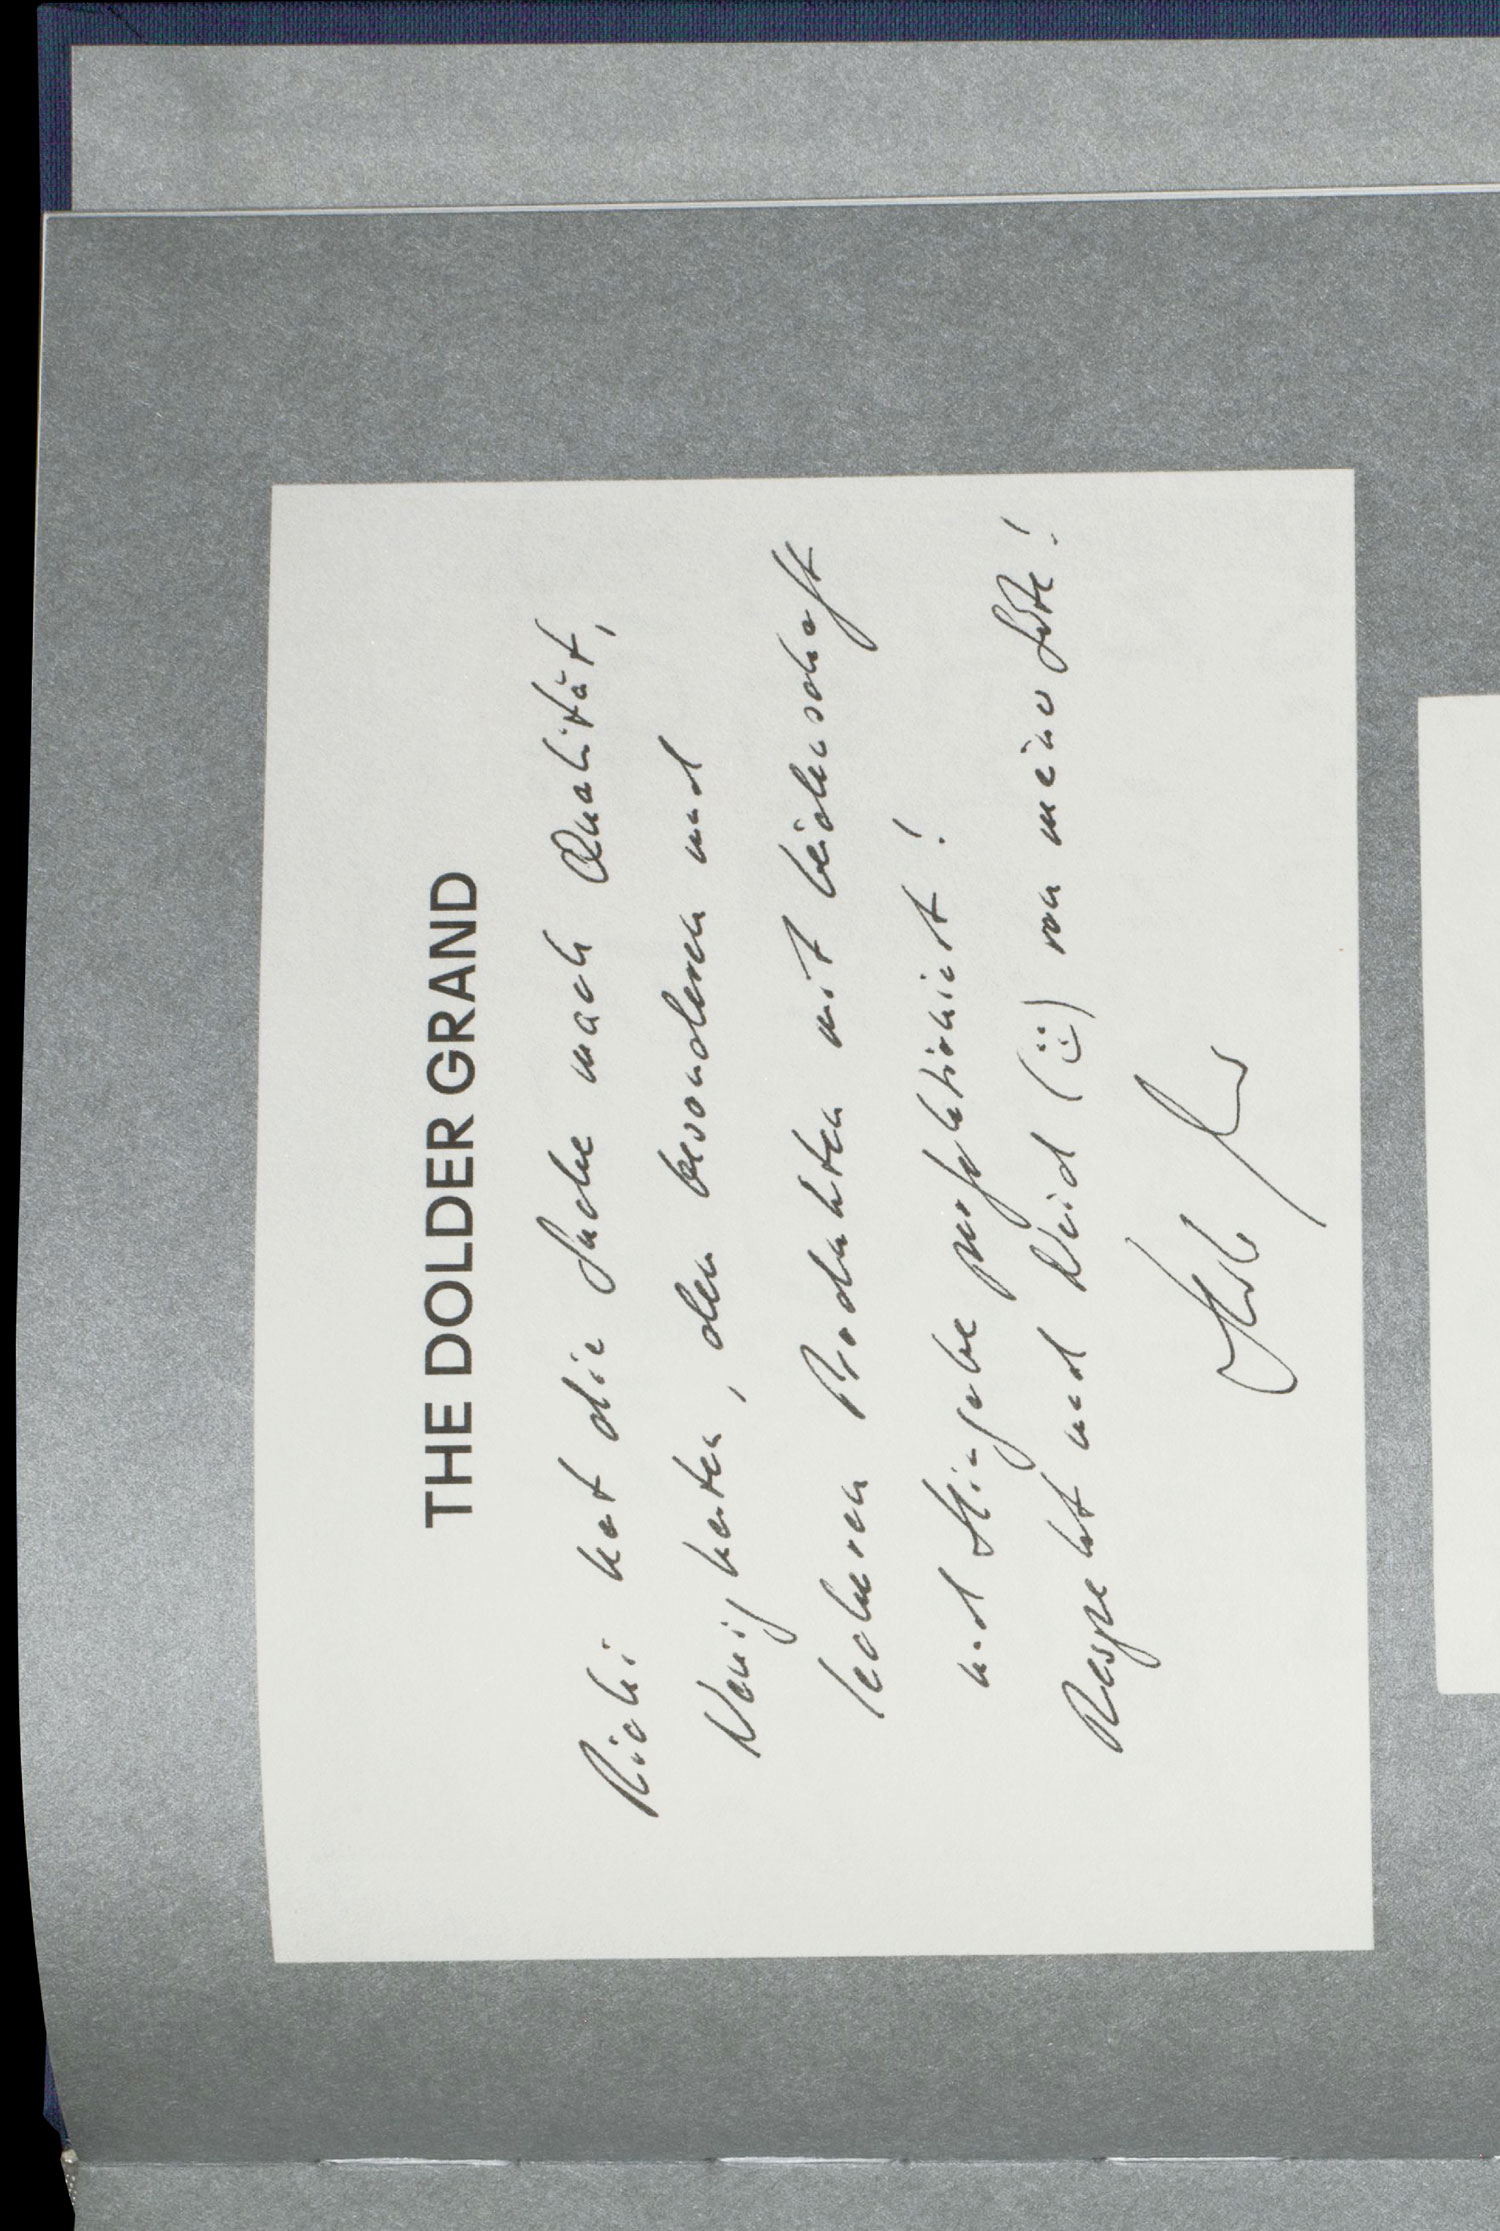 THE DOLDER GRAND
Richi hat die Suche nach Qualität,
Neuigkeiten, den besonderen und
leckeren Produkten mit Leidenschaft
und Hingabe perfektioniert!
Respekt und Neid (☺) von meiner Seite!